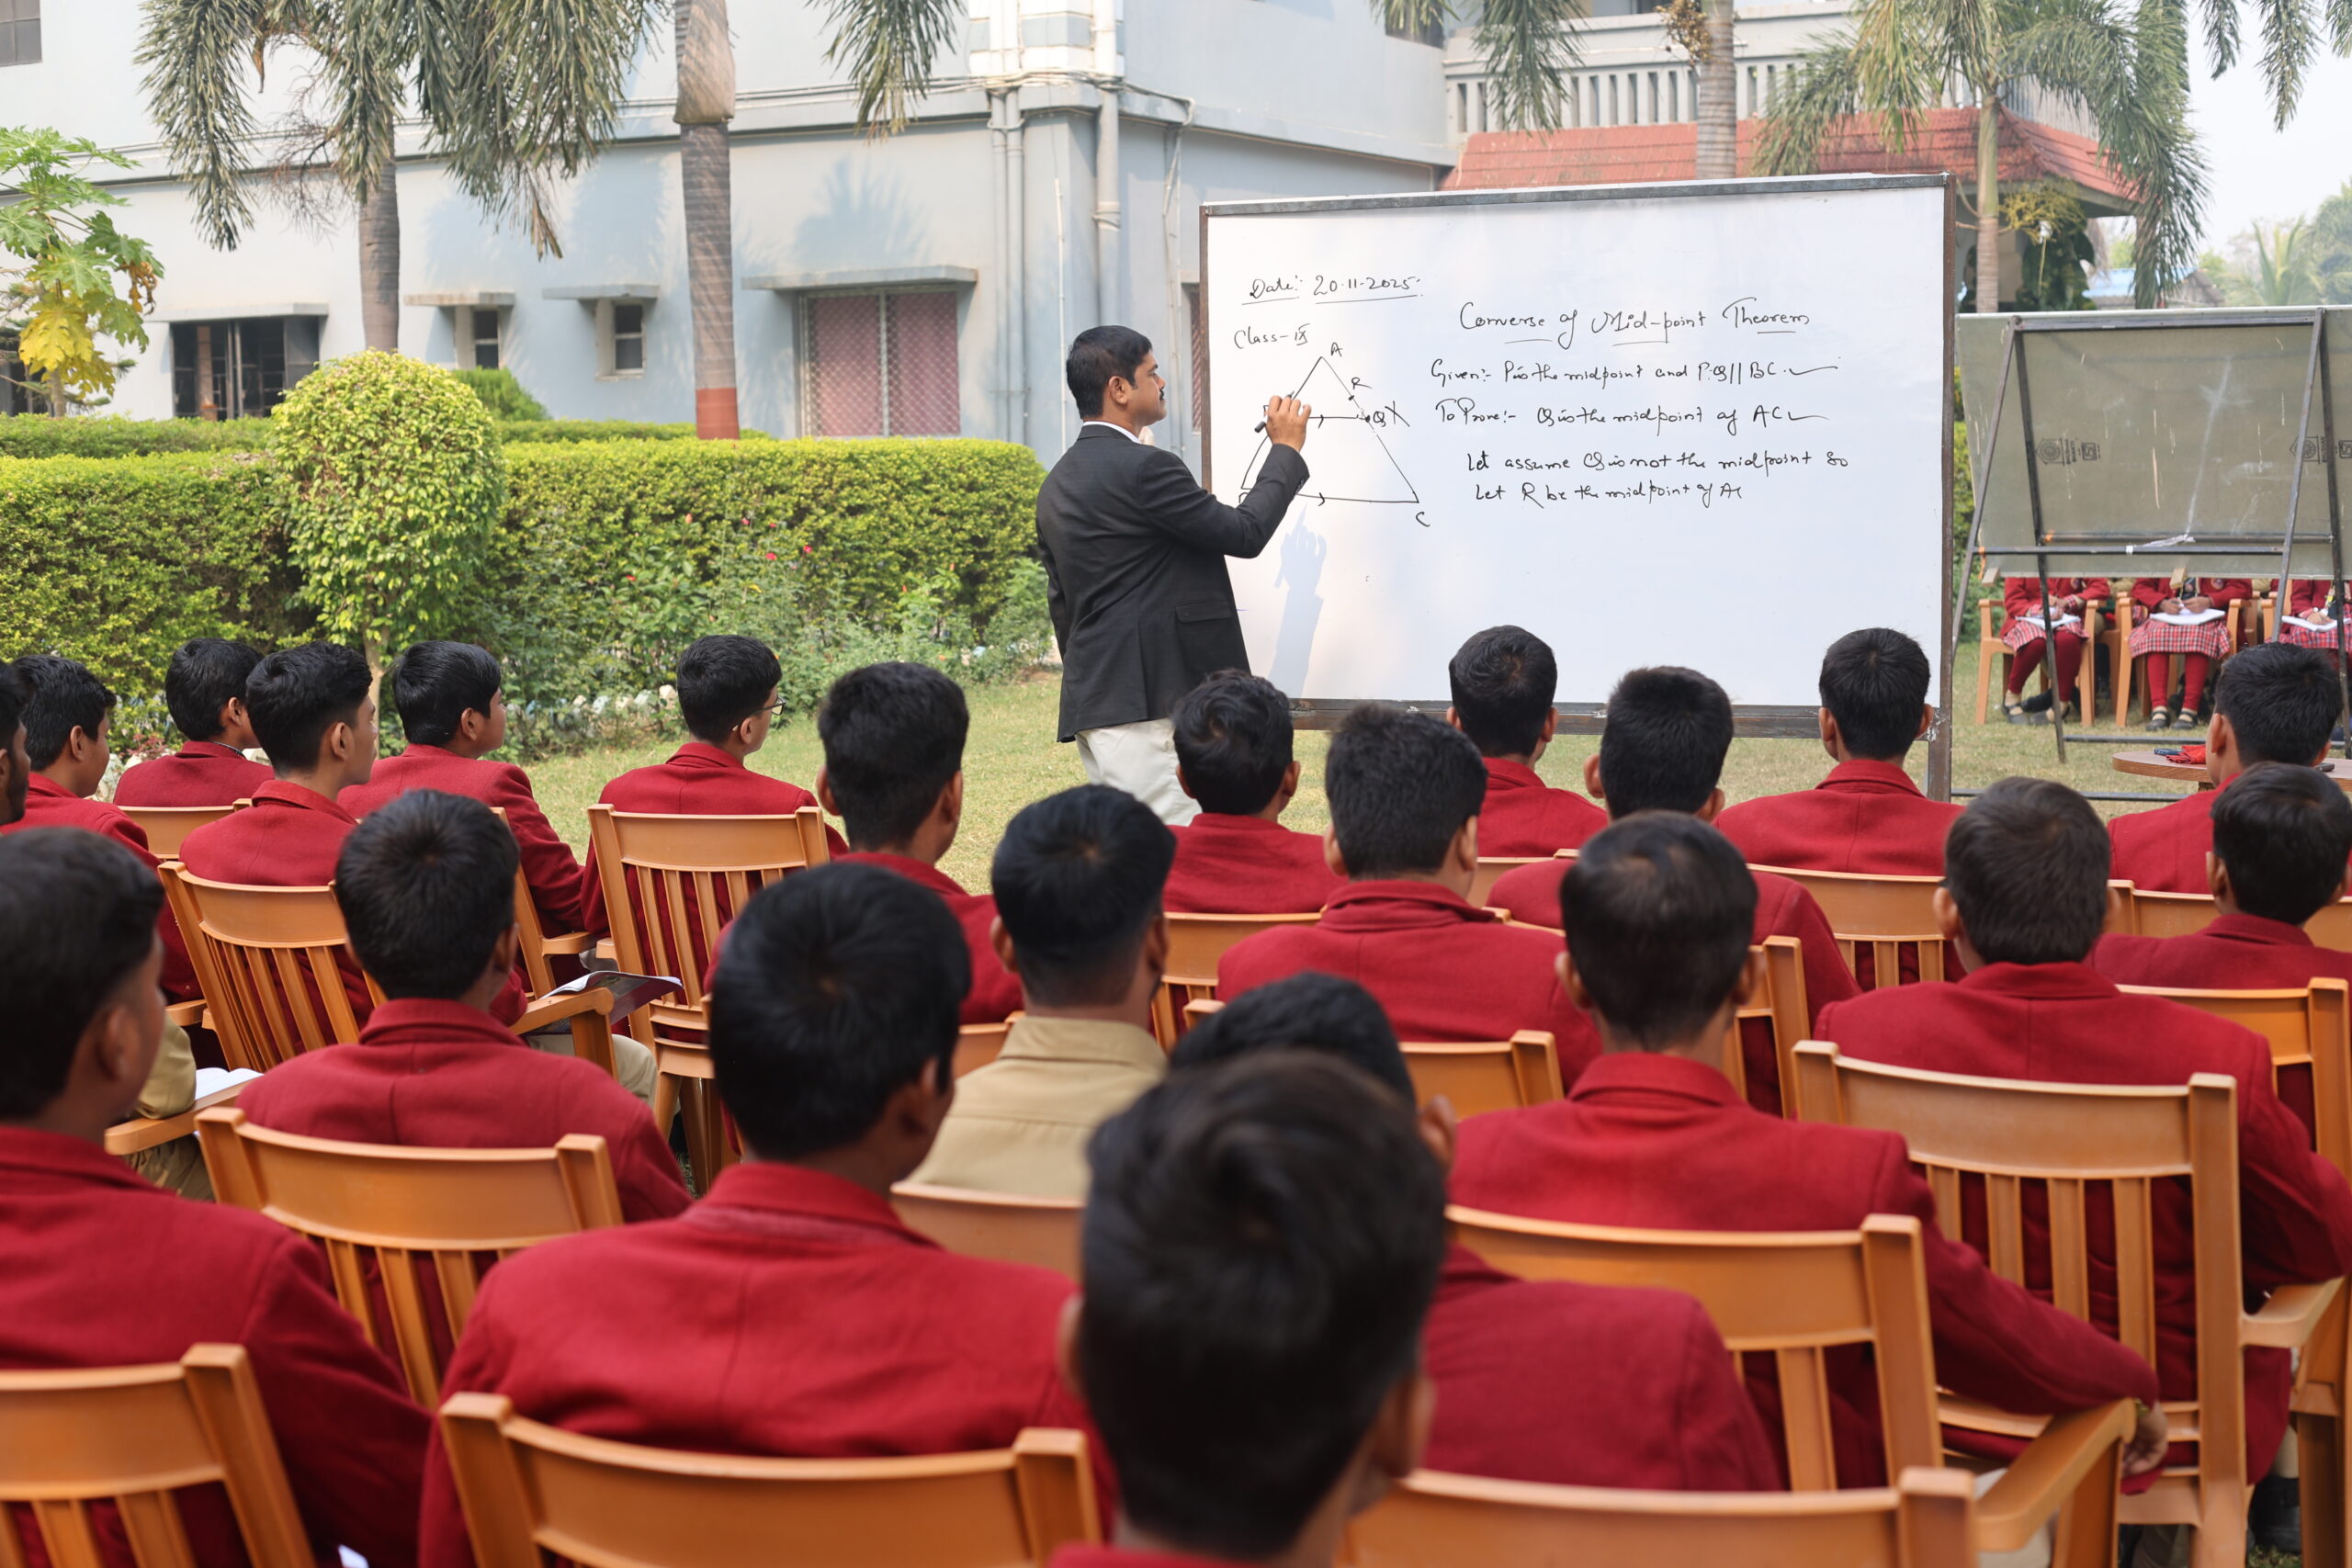 Date:- 20-11-2025
Class-IX
Converse of Mid-point Theorem
Given:- P is the midpoint and PQ||BC.
To Prove:- Q is the midpoint of AC
Let assume Q is not the midpoint so
Let R be the midpoint of AC
A
R
Q
C